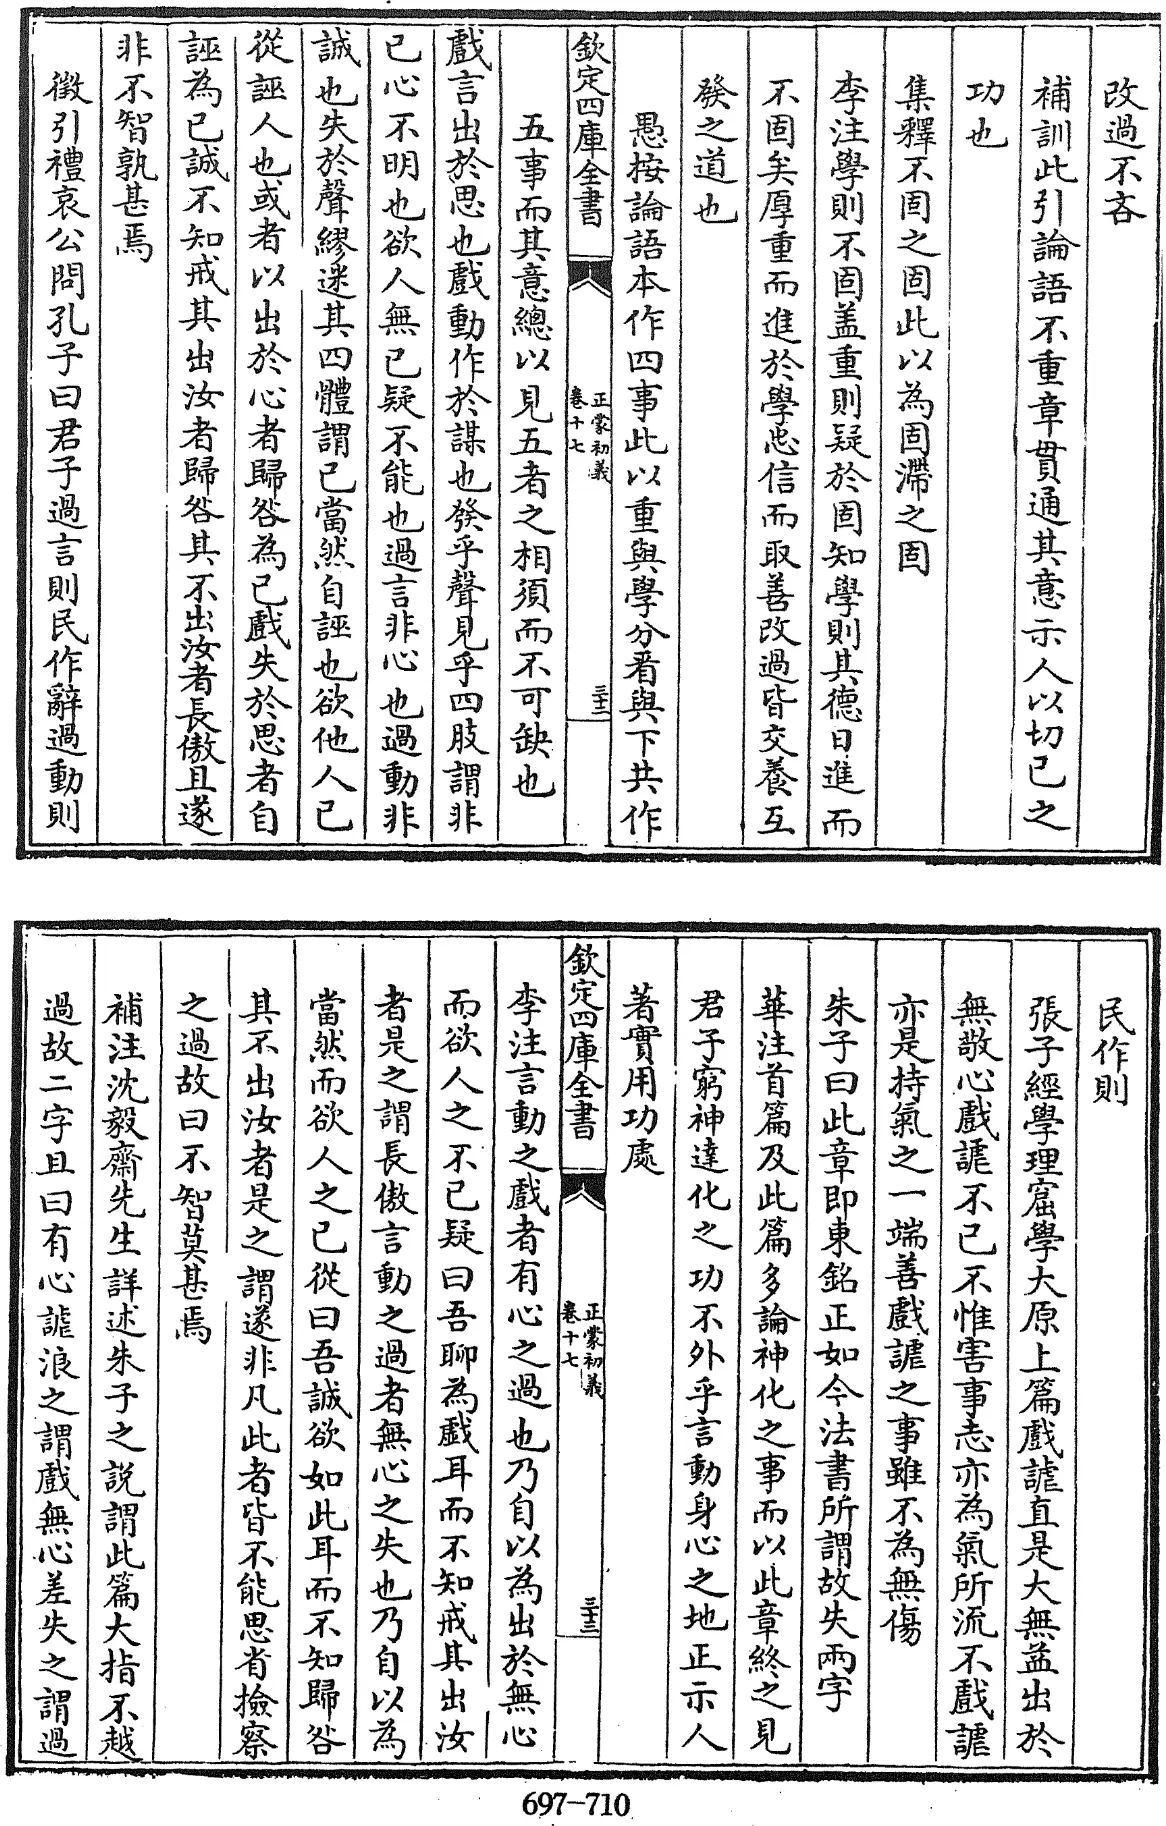 改過不吝
補訓此引論語不重章貫通其意示人以切己之
功也
集釋不固之固此以為固滯之固
李注學則不固盖重則疑於固知學則其德日進而
不固矣厚重而進於學忠信而取善改過皆交養互
發之道也
愚按論語本作四事此以重與學分看與下共作
欽定四庫全書
正蒙初義
卷十七
三十二
五事而其意總以見五者之相須而不可缺也
戲言出於思也戲動作於謀也發乎聲見乎四肢謂非
已心不明也欲人無已疑不能也過言非心也過動非
誠也失於聲繆迷其四體謂已當然自誣也欲他人已
從誣人也或者以出於心者歸咎為已戲失於思者自
誣為已誠不知戒其出汝者歸咎其不出汝者長傲且遂
非不智孰甚焉
徵引禮哀公問孔子曰君子過言則民作辭過動則
民作則
張子經學理窟學大原上篇戲謔直是大無益出於
無敬心戲謔不已不惟害事志亦為氣所流不戲謔
亦是持氣之一端善戲謔之事雖不為無傷
朱子曰此章即東銘正如今法書所謂故失兩字
華注首篇及此篇多論神化之事而以此章終之見
君子窮神達化之功不外乎言動身心之地正示人
著實用功處
欽定四庫全書
正蒙初義
卷十七
三十三
李注言動之戲者有心之過也乃自以為出於無心
而欲人之不已疑曰吾聊為戲耳而不知戒其出汝
者是之謂長傲言動之過者無心之失也乃自以為
當然而欲人之已從曰吾誠欲如此耳而不知歸咎
其不出汝者是之謂遂非凡此者皆不能思省撿察
之過故曰不智莫甚焉
補注沈毅齋先生詳述朱子之説謂此篇大指不越
過故二字且曰有心謔浪之謂戲無心差失之謂過
697-710